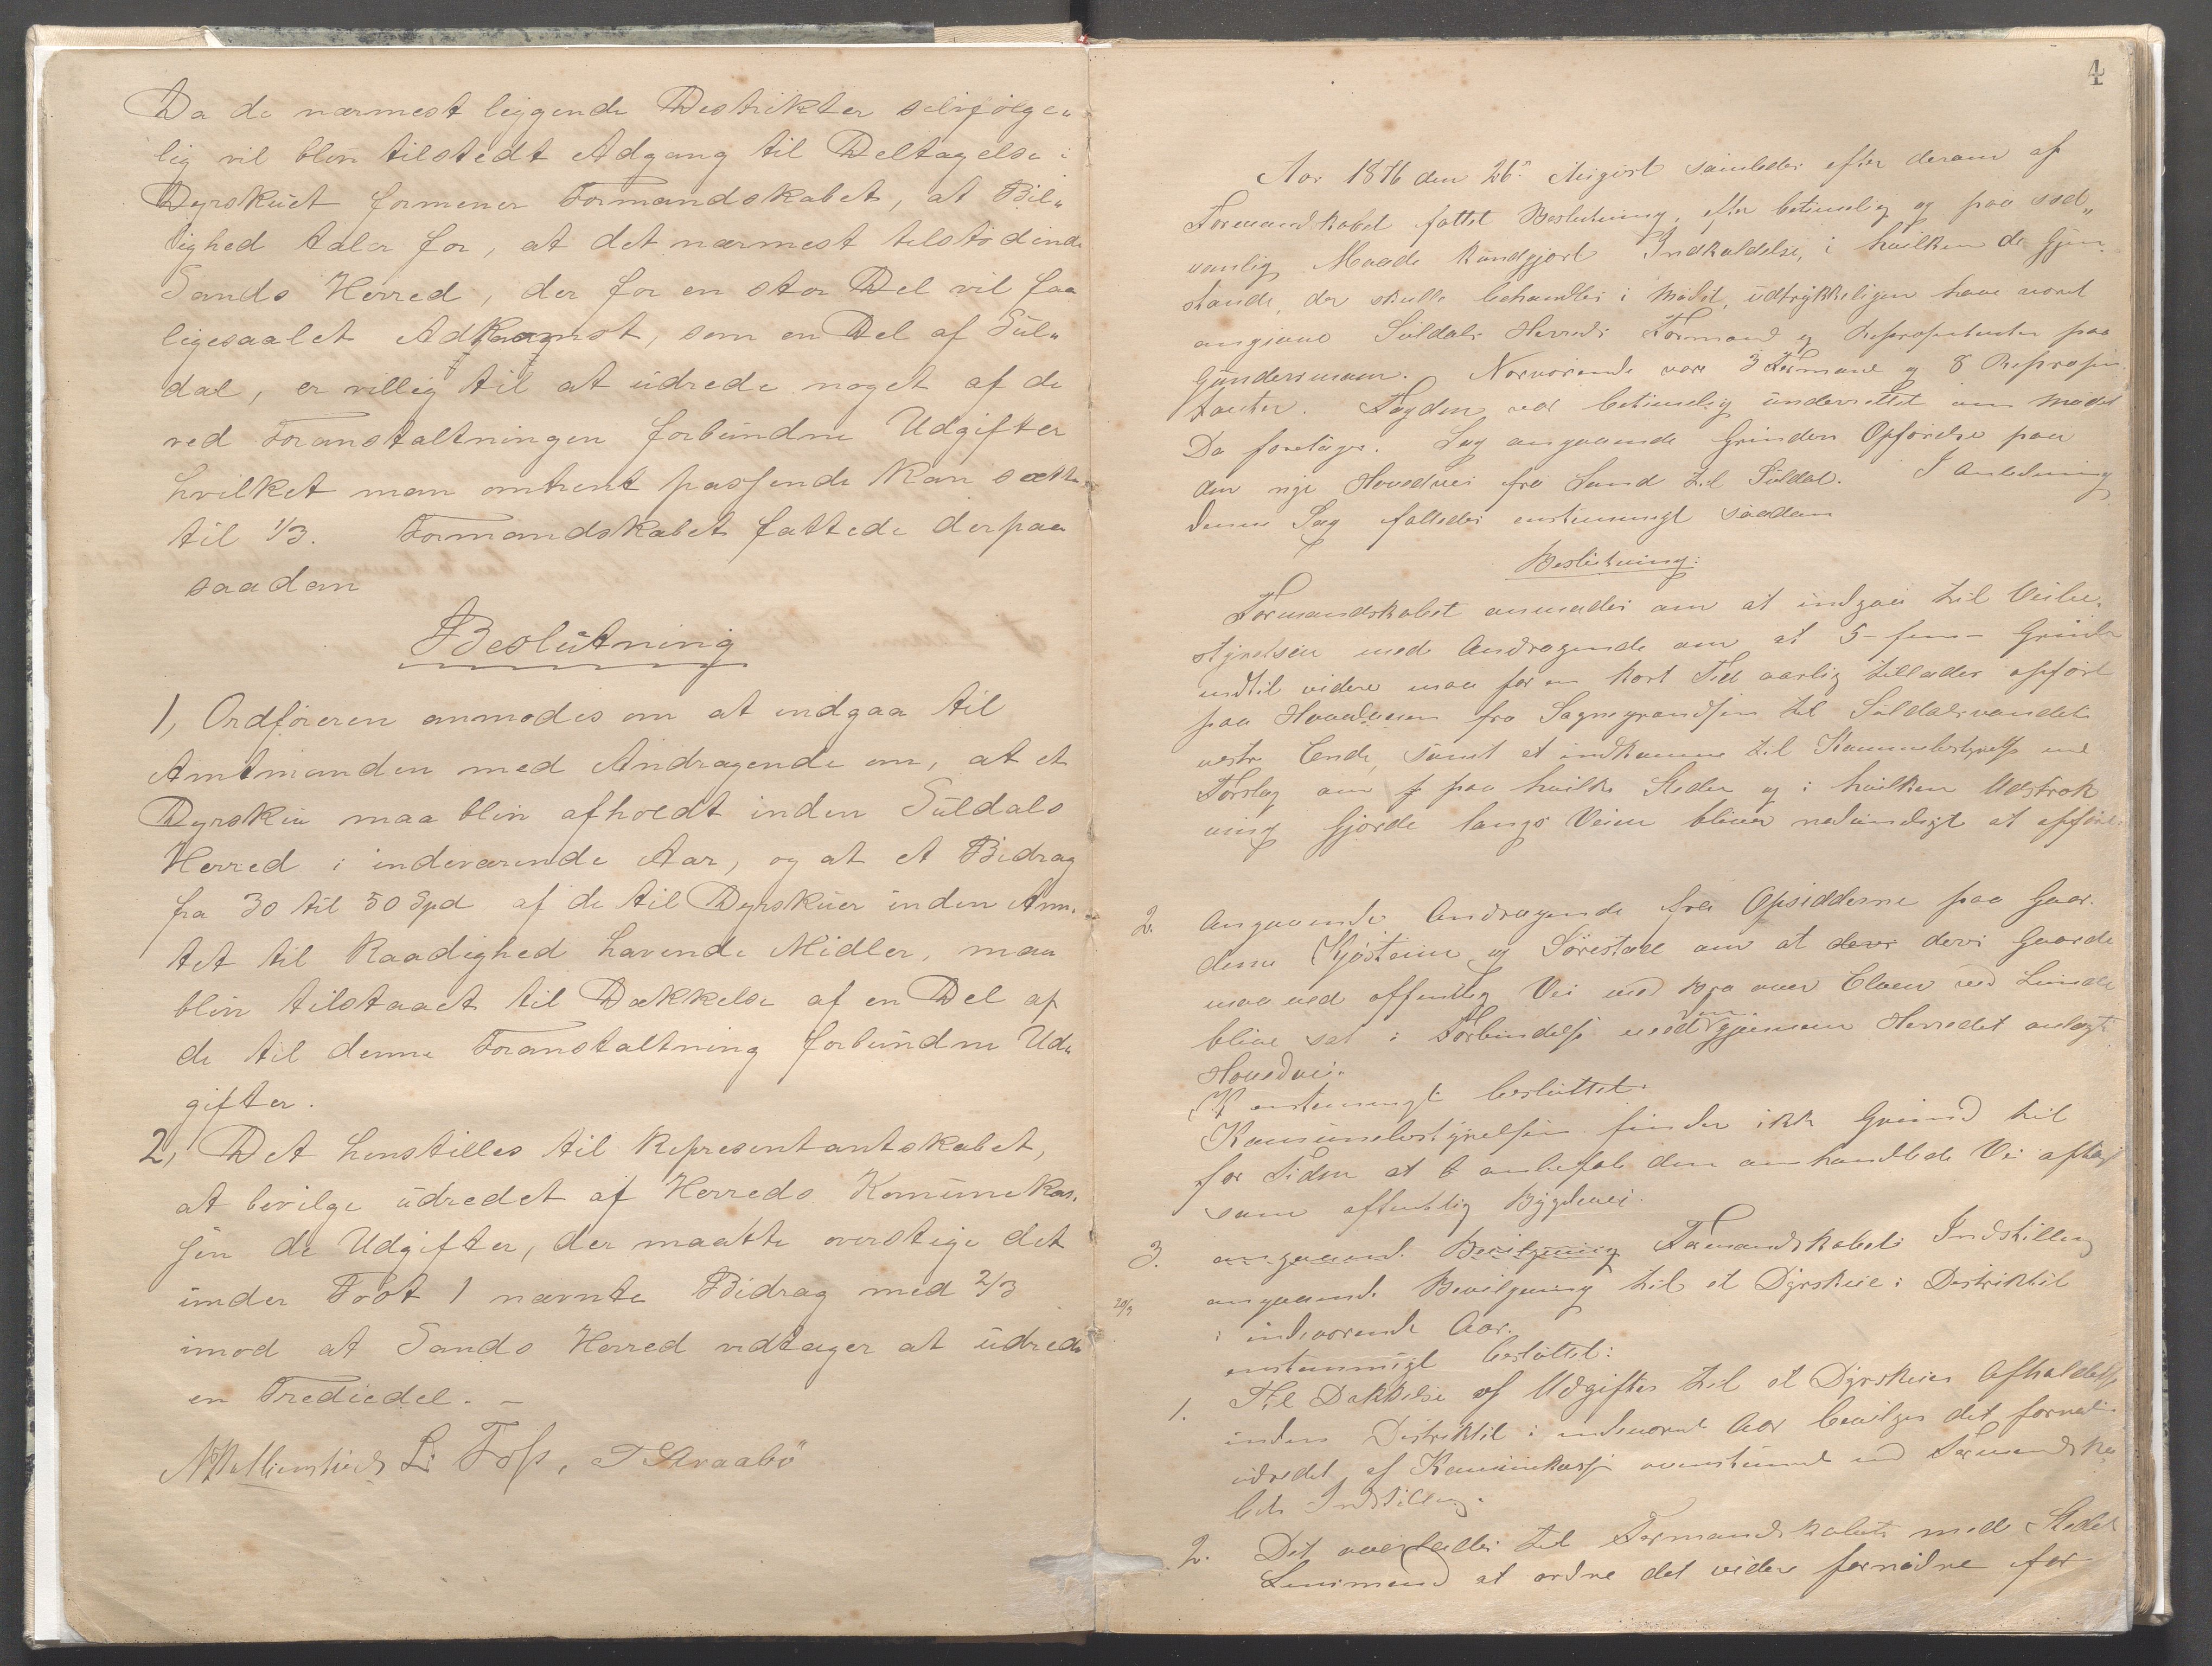 Da de nærmest liggende Destrikter selvfølge„
lig vil bliv tilstedt Adgang til Deltagelse i
Dyrskuet formener Formandskabet, at Bil„
lighed taler for, at det nærmest tilstødende
Sands Herred, der for en stor Del vil faa
ligesaalet Adkomst, som en Del af Sul„
dal, er villig til at udrede noget af de
ved Foranstaltningen forbundne Udgifter
hvilket man omtrent passende kan sætte
til 1/3. Formandskabet fattede derpaa
saadan
Beslutning
1, Ordføreren anmodes om at indgaa til
Amtmanden med Andragende om, at et
Dyrskue maa bliv afholdt inden Suldals
Herred i indeværende Aar, og at et Bidrag
fra 30 til 50 Spd af de til Dyrskuer inden Am„
tet til Raadighed havende Midler, maa
bliv tilstaaet til Dækkelse af en Del af
de til denne Foranstaltning forbundne Ud„
gifter.
2, Det henstilles til Representantskabet,
at bevilge udredet af Herreds Komunekas„
sen de Udgifter, der maatte overstige det
under Post 1 nævnte Bidrag med 2/3
imod at Sands Herred vedtager at udrede
en Trediedel. –
L. Foss, T Araabö
4
Aar 1876 den 26. August samledes efter derom af
Formandskabet fattet Beslutning, efter betimelig og paa sæd„
vanlig Maade kundgjort Indkaldelse, i hvilken de Gjen
stande, der skulle behandles i Mødet, udtrykkeligen have været
angivne Suldals Herreds Formænd og Repræsentanter paa
Gundersmoen. Nærværende vare 3 Formænd og 8 Repræsen
tanter. Fogden var betimelig underrettet om Mødet
Da foretages. Sag angaaende Grinders Opførelse paa
den nye Hovedvei fra Sand til Suldal. I Anledning
denne Sag fattedes enstemmigt saadan
Beslutning:
Formandskabet anmodes om at indgaa til Veibe„
styrelsen med Andragende om at 5 – fem – Grinder
indtil videre maa for en kort Tid aarlig tillades opført
paa Hovedveien fra til Suldalsvandets
vestre Ende, samt at indkomme til Kommunebestyrelse med
Forslag om f paa hvilke Steder og i hvilken Udstræk
ning Gjærde langs Veien bliver nødvendigt at opføre.
2. Angaaende Andragende fra Opsidderne paa Gaar„
dene Kjøsteim og Sørestøl om at deres deres Gaarde
maa ved offentlig Vei med Bro over Elven ved Linde
blive sat i Forbindelse med den gjennem Herredet anlagte
Hovedvei.
Enstemmigt besluttet:
Kommunebestyrelsen finder ikke Grund til
for Tiden at t anbefale den omhandlede Vei optaget
som offentlig Bygdevei.
3. angaaend. Bevilgning Formandskabets Indstilling
20/9
angaaende Bevilgning til et Dyrskue i Distriktet
i indeværende Aar.
enstemmigt besluttet:
1. Til Dækkelse af Udgifter til et Dyrskues Afholdelse
inden Distriktet i indeværend Aar bevilges det fornødne
udredet af Kommunekassen overstemmende med Formandska
bets Indstilling.
2. Det overlades til Formandskabet med Stedets
Lensmand at ordne det videre fornødne for